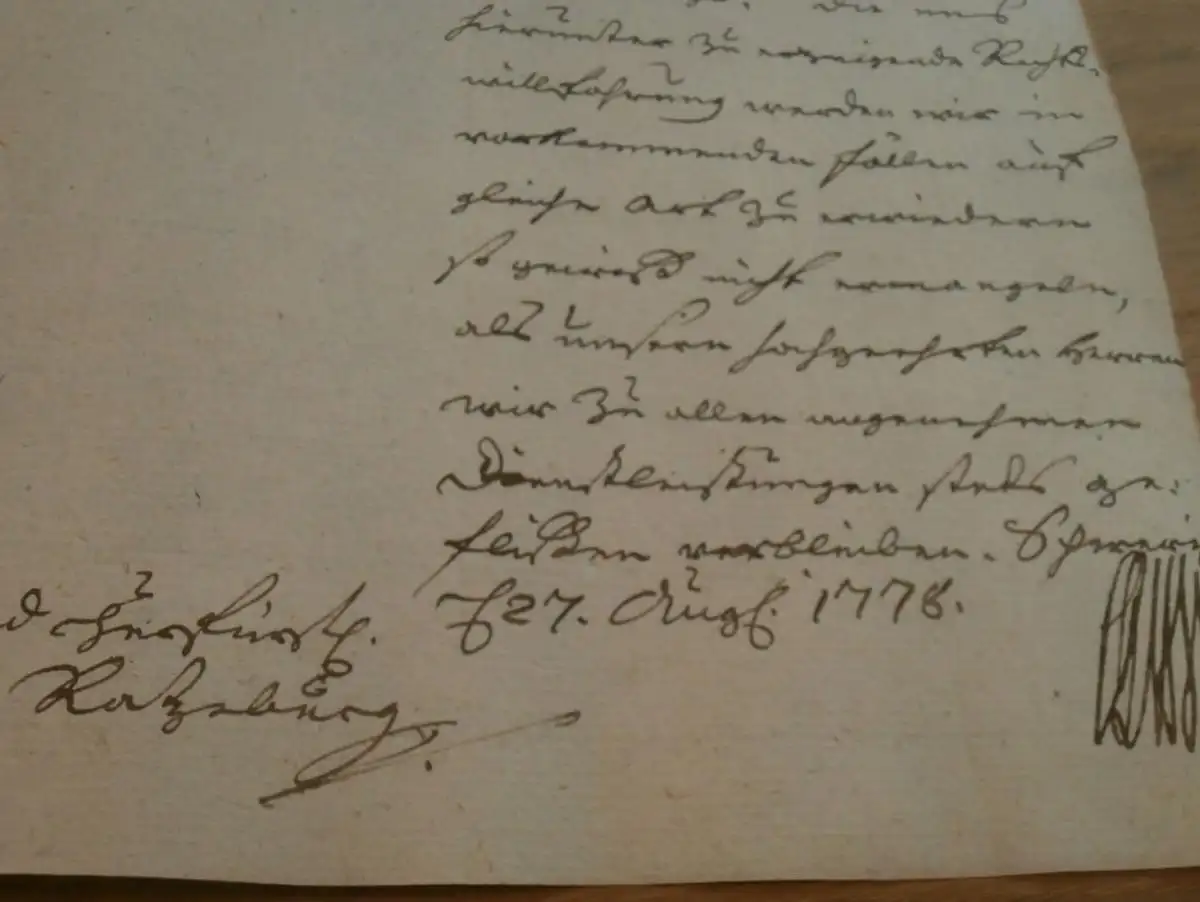 die uns
hierunter zu erzeigende Rechts-
willfahrung werden wir in
vorkommenden fällen auf
gleiche Art zu erwiedern
so gewiß nicht ermangeln,
als unsern hochgeehrten Herren
wir zu allen angenehmen
Dienstleistungen stets ge:
flißen verbleiben. Schwerin
27. Aug. 1778.
d Churfürstl.
Ratzeburg.